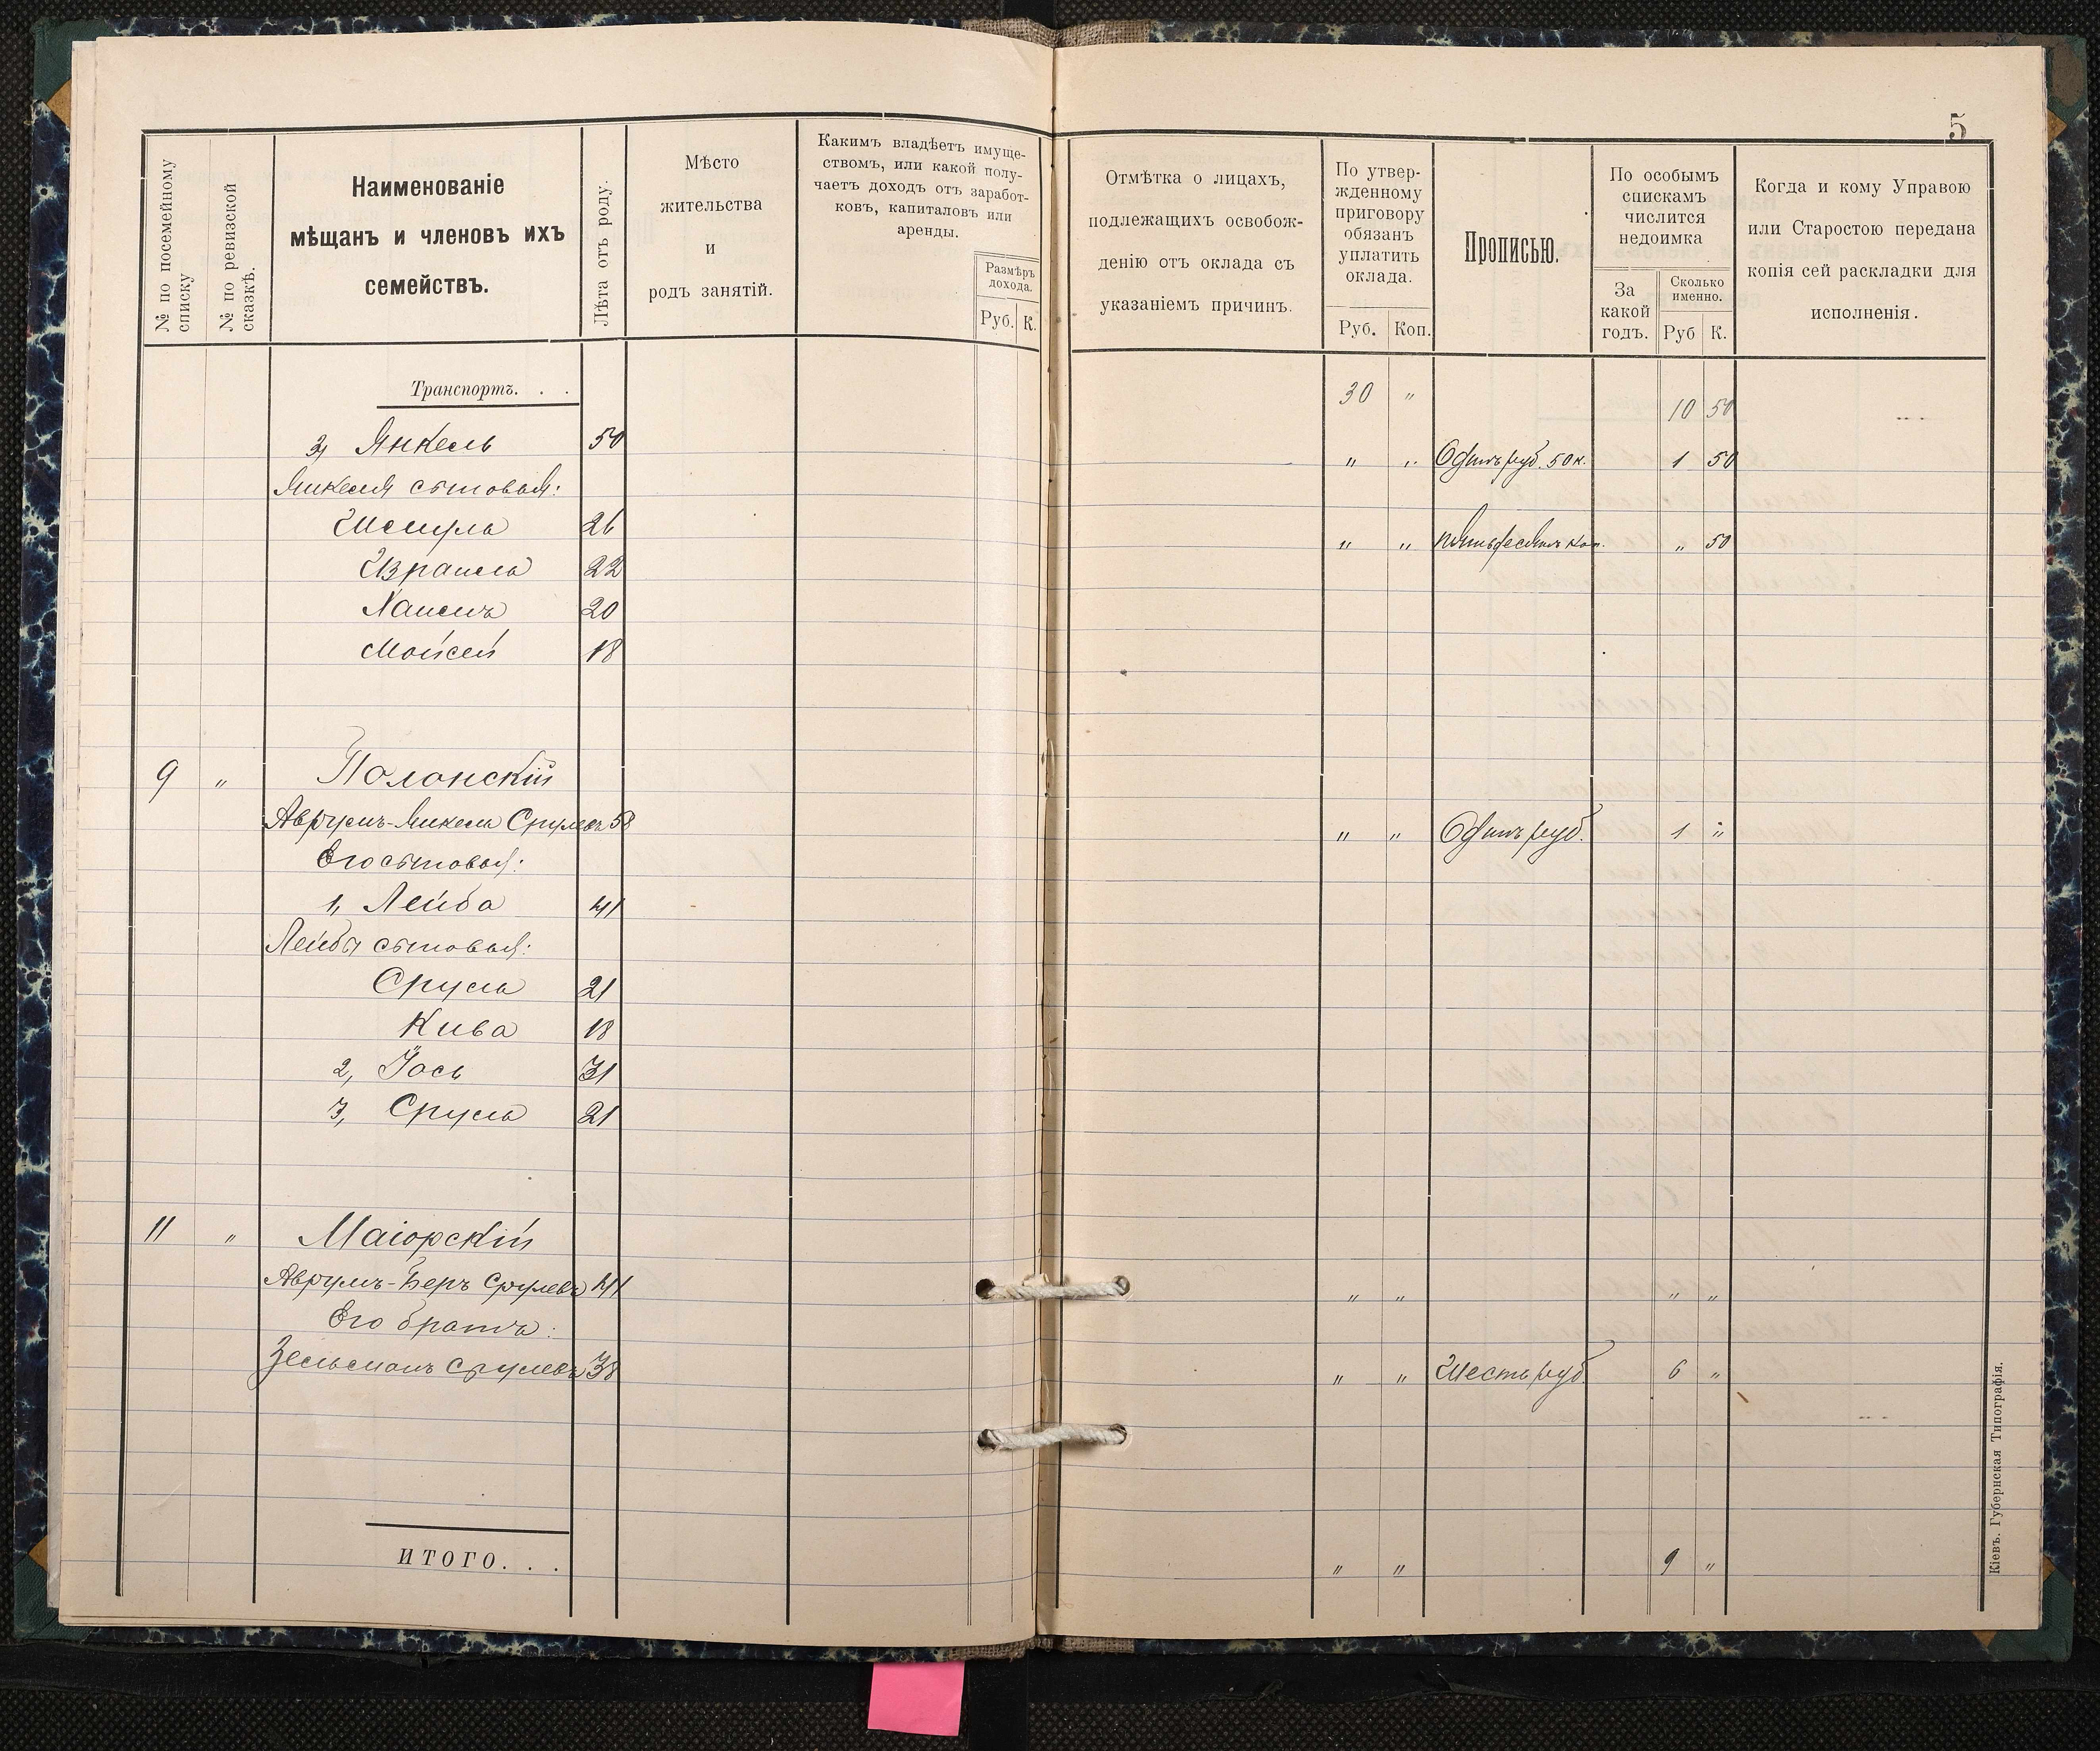 5
№ по посемейному списку
№ по ревизской сказкѣ.
Наименованіе
мѣщанъ и членовъ ихъ
семействъ.
Лѣта отъ роду.
Мѣсто
жительства
и
родъ занятій.
Какимъ владѣетъ имуще-
ствомъ, или какой полу-
чаетъ доходъ отъ заработ-
ковъ, капиталовъ или
аренды.
Размѣръ
дохода.
Руб. К.
Отмѣтка о лицахъ,
подлежащихъ освобож-
денію отъ оклада съ
указаніемъ причинъ.
По утвер-
жденному
приговору
обязанъ
уплатить
оклада.
Руб. Коп.
Прописью.
По особымъ
спискамъ
числится
недоимка
За
какой
годъ.
Сколько
именно.
Руб К.
Когда и кому Управою
или Старостою передана
копія сей раскладки для
исполненія.
Транспортъ. . . 30 " 10 50
3, Янкель 50 " " Одинъ руб. 50 к. 1 50
Янкеля сыновья:
Шмуль 26 " " пятьдесятъ коп. " 50
Израиль 22
Хаимъ 20
Мойсей 18
9 " Полонскій
Аврумъ-Янкель Срулевъ 58 " " Одинъ руб. 1 "
Его сыновья:
1, Лейба 41
Лейбы сыновья:
Сруль 21
Кива 18
2, Іось 31
3, Сруль 21
11 " Маіорскій
Аврумъ-Беръ Срулевъ 41 " " " "
Его братъ:
Зельманъ Срулевъ 38 " " Шесть руб. 6 "
ИТОГО. . . " " 9 "
Кіевъ. Губернская Типографія.